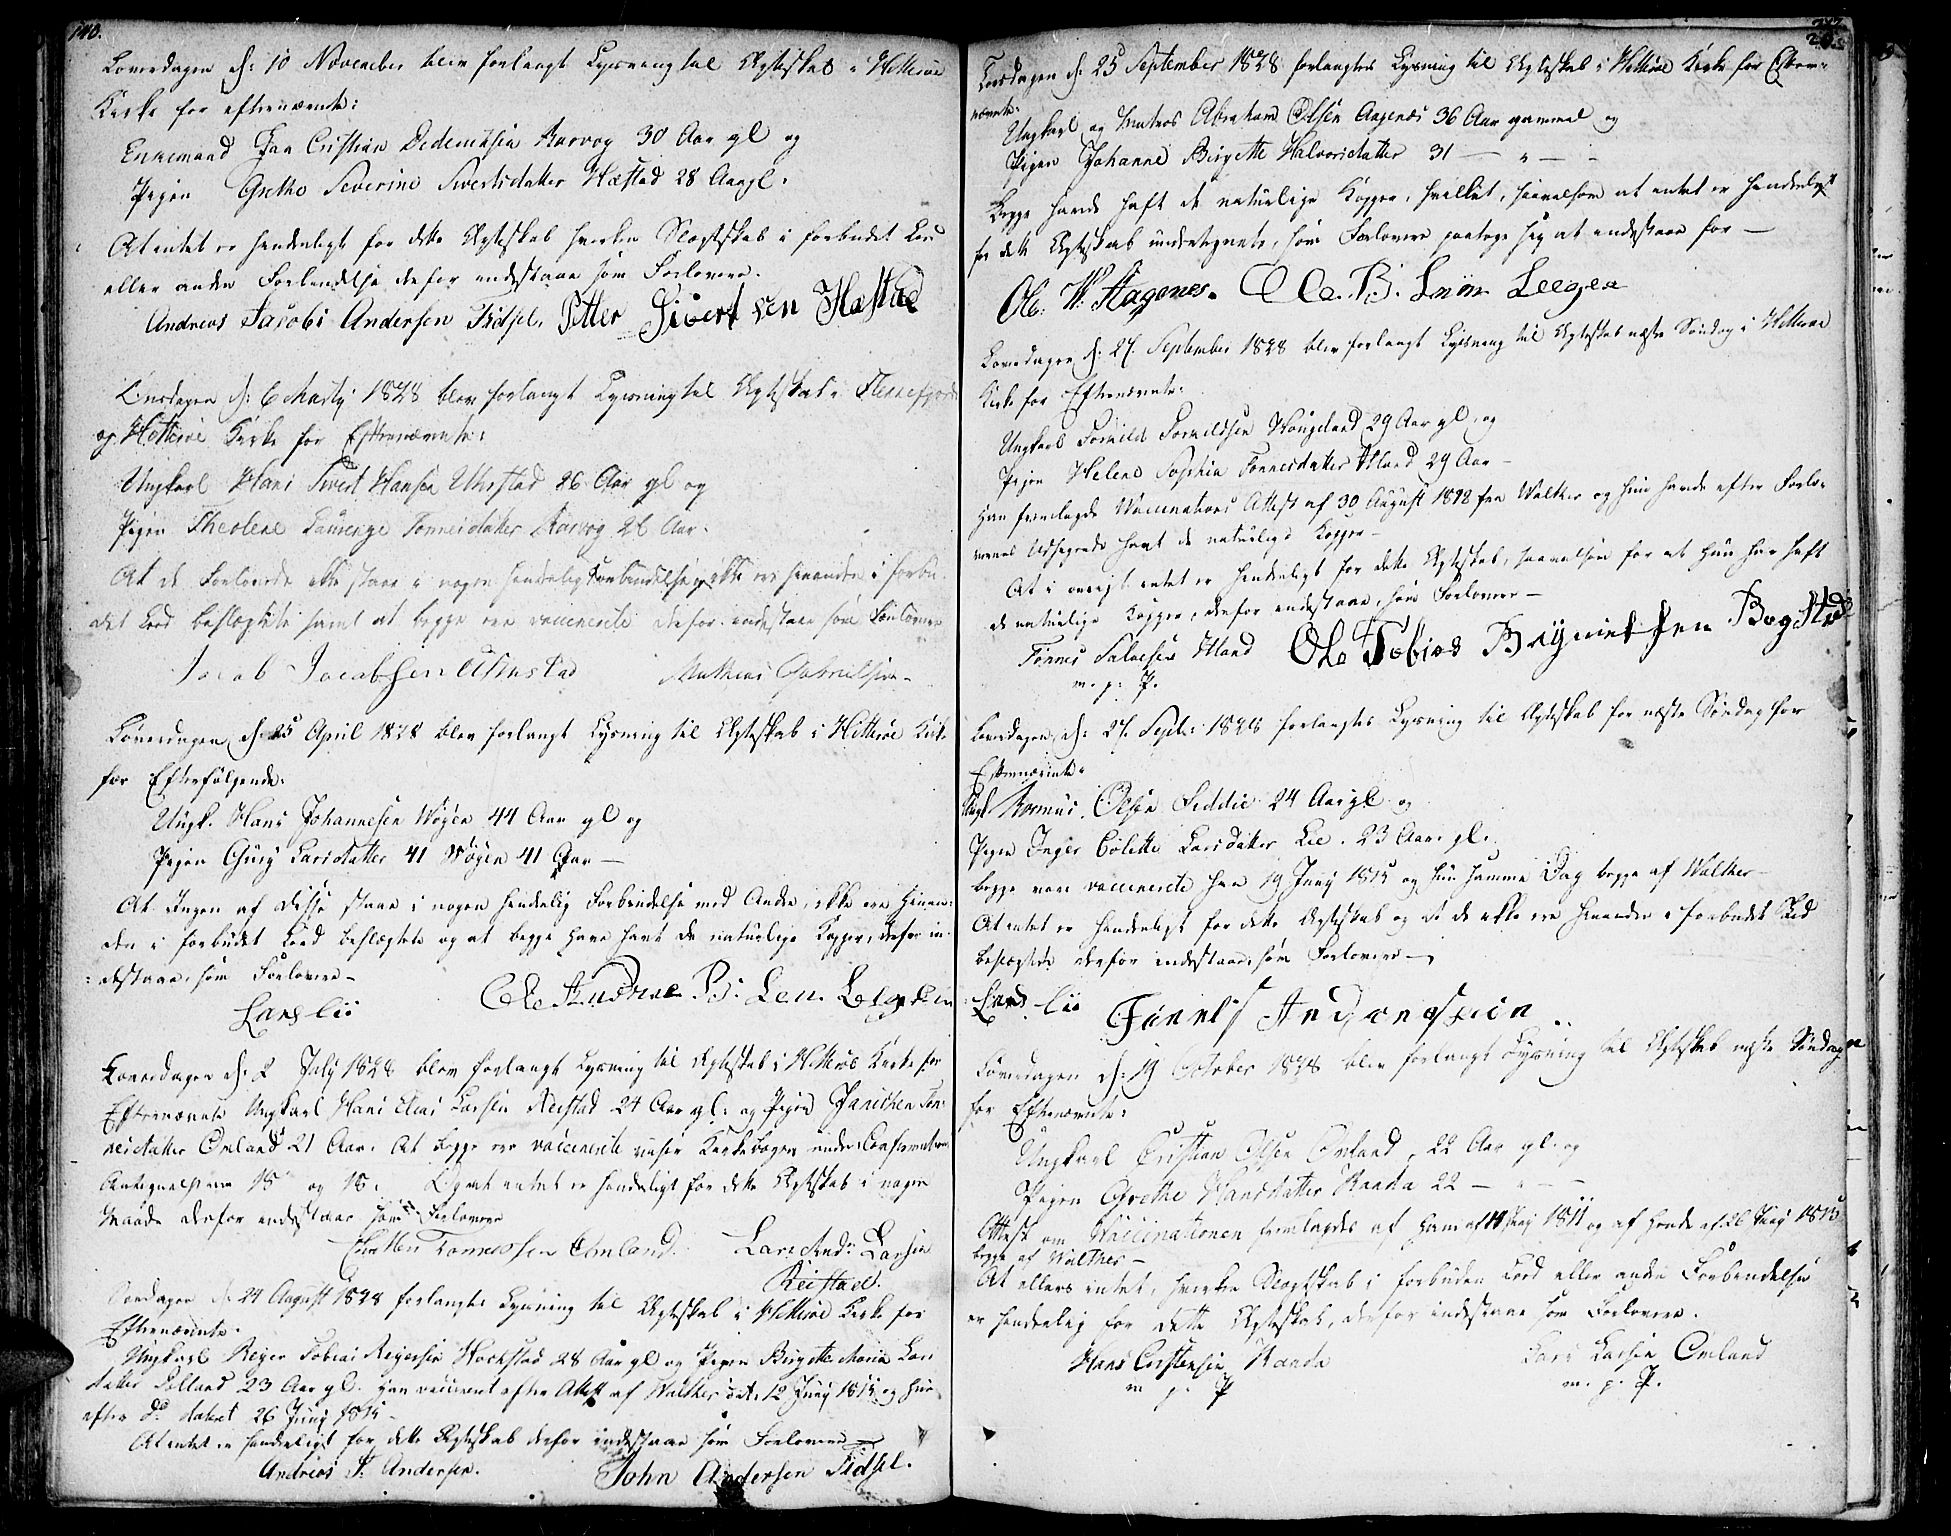 140.
Løverdagen d: 10 November blev forlangt Lysning til Ægteskab i Hitterøe
Kirke for efternævnte:
Enkemand Jan Cristian Dederichsen Rarvog 30 Aar gl og
Pigen Grethe Severine Sivertsdatter Hæstad 28 Aar gl.
At intet er hinderligt for dette Ægteskab hverken Slægtskab i forbudet Led
eller anden Forbindelse derfor indestaae som Forlovere.
Andreas Jacobs Andersen Fidsel. Petter Sivertsen Hæstad
Onsdagen d: 6 Marty 1828 blev forlangt Lysning til Ægteskab i Flekkefjord
og Hitterøe Kirke for Efternævnte:
Ungkarl Hans Sivert Hansen Uhrstad 26 Aar gl og
Pigen Theolene Laurenze Tønnesdatter Rarvog 26 Aar.
At de Forlovede ikke staae i nogen hinderlig Forbindelse og ikke ere hinanden i forbu-
det Led beslægtede samt at begge ere vaccinerte derfor indestaae som Forlovere
Jacob Jacobsen Uhrstad Mathias Gabrielsen
Løverdagen d: 25 April 1828 blev forlangt Lysning til Ægteskab i Hitterøe Kirke
for Efterfølgende:
Ungk. Hans Johannesen Wøgen 44 Aar gl og
Pigen Guri Larsdatter 41 Wøgen 41 Aar —
At Ingen af disse staae i nogen hinderlig Forbindelse med Andre, ikke ere Hinan-
den i forbudet Led beslægtede og at begge have havt de naturlige Kopper, derfor in-
destaae, som Forlovere —
Lars Lie Ole Andreas B: Sen. Leegden
Løverdagen d: 2 July 1828 blev forlangt Lysning til Ægteskab i Hitterøe Kirke for
Efternævnte Ungkarl Hans Elias Larsen Reistad 24 Aar gl: og Pigen Janichen Tøn-
nesdatter Omland 21 Aar. At begge ere vaccinerte viser Kirkebogen under Confirmations
Antegnelserne 18 og 18. Og at intet er hinderligt for dette Ægteskab i nogen
Maade derfor indestaae som Forlovere
Christen Tønnessen Omland. Lars And: Larsen
Reistad.
Søndagen d: 24 August 1828 forlangtes Lysning til Ægteskab i Hitterøe Kirke for
Efternævnte:
Ungkarl Reyer Tobias Reyersen Hochstad 28 Aar gl og Pigen Birgitte Maria Lars
datter Dolland 23 Aar gl. Han vaccinert efter Attest af Walther dat. 12 Juny 1815 og hun
efter do dateret 26 Juny 1815 —
At intet er hinderligt for dette Ægteskab derfor indestaae som Forlovere —
Andreas J. Andersen. John Andersen Fidsel.
Torsdagen d: 25 September 1828 forlangtes Lysning til Ægteskab i Hitterøe Kirke for Efter-
nævnte:
Ungkarl og Matros Abraham Olsen Aagenes 36 Aar gammel og
Pigen Johanne Birgitte Halvorsdatter 31 — " — -
Begge havde haft de naturlige Kopper, hvilket, saavelsom at intet er hinderligt
for dette Ægteskab undertegnede, som Forlovere paatoge sig at indestaae for —
Ol: W. Aagenes. Ole. B. Søn Leegen
Løverdagen d: 27. September 1828 blev forlangt Lysning til Ægteskab næste Søndag i Hitterøe
Kirke for Efternævnte:
Ungkarl Tormild Tormildsen Hougeland 29 Aar gl, og
Pigen Helene Sophia Tønnesdatter Hland 29 Aar —
Han fremlagde Vaccinations Attest af 30 August 1812 fra Walther og hun havde efter Forlo-
vernes Udsigende havt de naturlige Kopper —
At i øvrigt intet er hinderligt for dette Ægteskab, saavelsom for at hun har haft
de naturlige Kopper, derfor indestaae, som Forlovere —
Tønnes Salvesen Hland Ole Tobias Brynildsen Bogstad
m. p. P.
Løverdagen d: 27. Septbr 1828 forlangtes Lysning til Ægteskab for næste Søndag for
Efternævnte:
Ungk. Rasmus Olsen Feddie 24 Aar gl og
Pigen Inger Colette Larsdatter Lie. 23 Aar gl.
begge vare vaccinerte han 19 Juny 1815 og hun samme Dag begge af Walther —
At intet er hinderligt for dette Ægteskab og at de ikke ere hinanden i forbudet Led
beslægtede derfor indestaae som Forlovere —
Lars Lie Tønnes Andreassen
Løverdagen d: 19 October 1828 blev forlangt Lysning til Ægteskab næste Søndag
for Efternævnte:
Ungkarl Cristian Olsen Omland, 22 Aar gl. og
Pigen Grethe Hansdatter Raada 22 — " — -
Attest om Vaccinationen fremlagdes af ham af 14 Juny 1811 og af hende af 26 Juny 1815
begge af Walther —
At ellers intet, hverken Slægtskab i forbuden Led eller anden Forbindelse
er hinderlig for dette Ægteskab, derfor indestaae som Forlovere.
Hans Cristensen Raada Lars Larsen Omland
m. p. P. m. p. P.